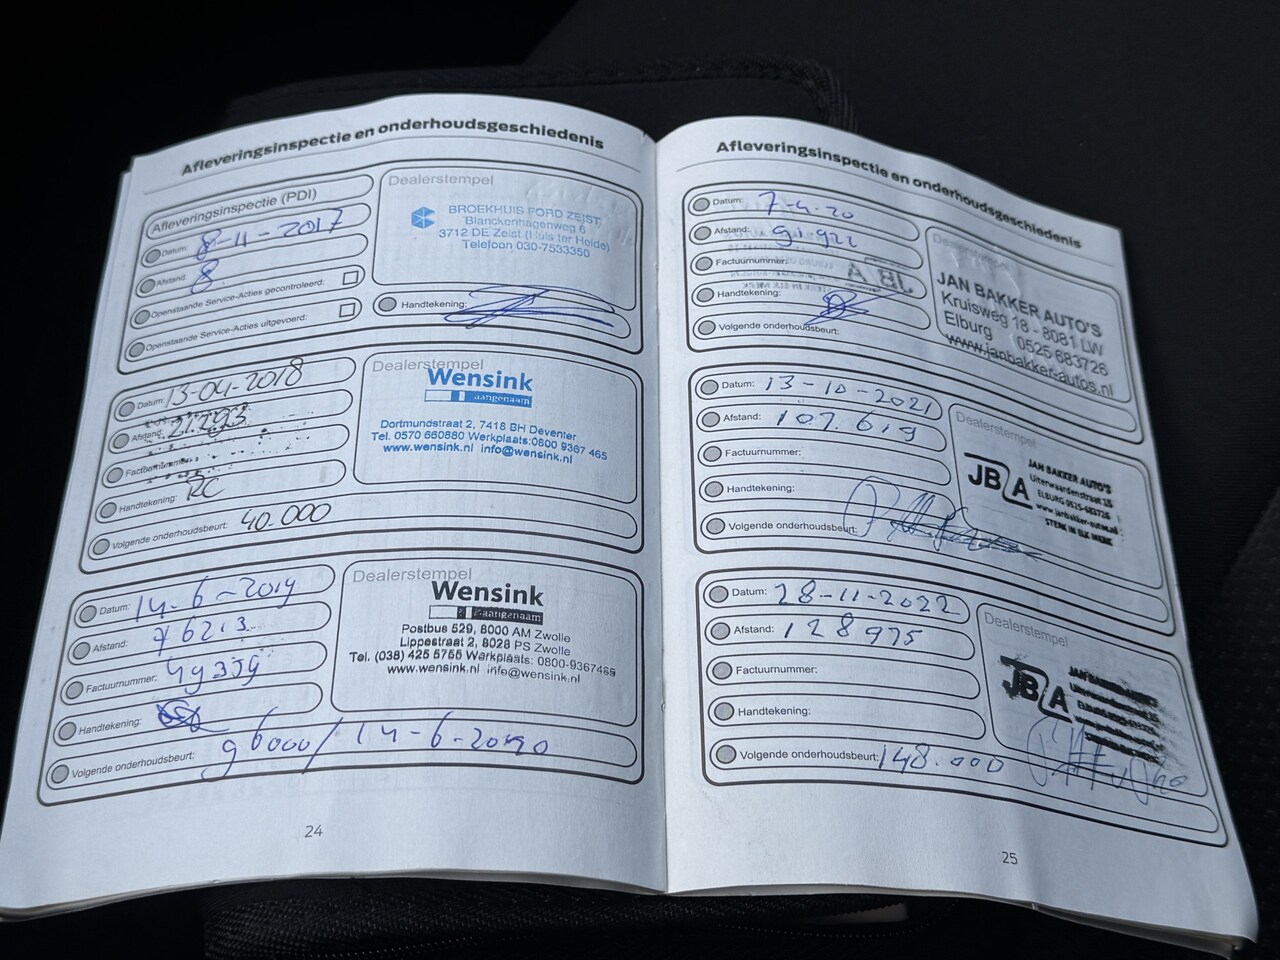 Afleveringsinspectie en onderhoudsgeschiedenis
Afleveringsinspectie (PDI)
Datum: 8-11-2017
Afstand: 8
Openstaande Service-Acties gecontroleerd:
Openstaande Service-Acties uitgevoerd:
Dealerstempel
BROEKHUIS FORD ZEIST
Blanckenhagenweg 6
3712 DE Zeist (Huis ter Heide)
Telefoon 030-7533350
Handtekening:
Datum: 13-04-2018
Afstand: 21293
Factuurnummer:
Handtekening: RC
Volgende onderhoudsbeurt: 40.000
Dealerstempel
Wensink
aangenaam
Dortmundstraat 2, 7418 BH Deventer
Tel. 0570 660880 Werkplaats:0800 9367 465
www.wensink.nl info@wensink.nl
Datum: 14-6-2019
Afstand: 76213
Factuurnummer: 49359
Handtekening:
Volgende onderhoudsbeurt: 96000/14-6-2020
Dealerstempel
Wensink
aangenaam
Postbus 529, 8000 AM Zwolle
Lippestraat 2, 8028 PS Zwolle
Tel. (038) 425 5755 Werkplaats: 0800-9367465
www.wensink.nl info@wensink.nl
24
Afleveringsinspectie en onderhoudsgeschiedenis
Datum: 7-4-20
Afstand: 91922
Factuurnummer:
Handtekening:
Volgende onderhoudsbeurt:
JAN BAKKER AUTO'S
Kruisweg 18 - 8081 LW
Elburg 0525 683726
www.janbakker-autos.nl
Datum: 13-10-2021
Afstand: 107.619
Factuurnummer:
Handtekening:
Volgende onderhoudsbeurt:
Dealerstempel
JBA
JAN BAKKER AUTO'S
Uiterwaardenstraat 15
ELBURG 0525-683726
www.janbakker-autos.nl
STERK IN ELK MERK
Datum: 28-11-2022
Afstand: 128975
Factuurnummer:
Handtekening:
Volgende onderhoudsbeurt: 148.000
Dealerstempel
JBA
JAN BAKKER AUTO'S
25